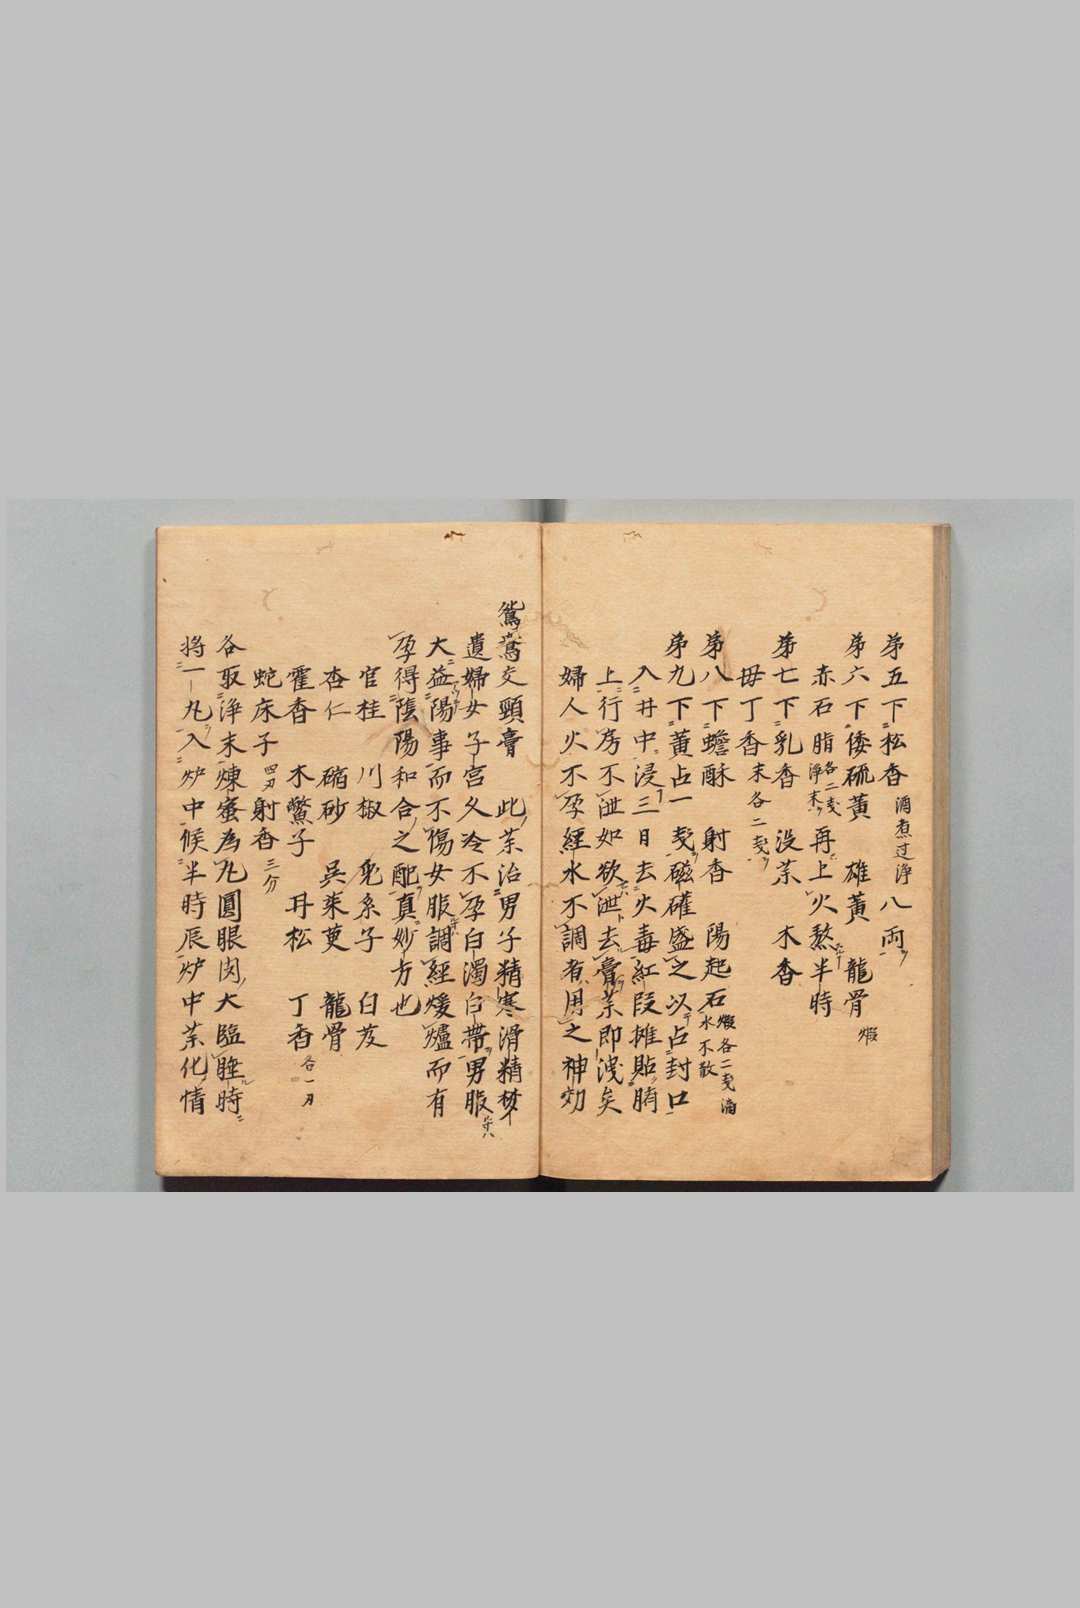 第五下松香酒煮过浄八両
第六下倭硫黄 雄黄 龍骨煅
赤石脂各二戔浄末再上火熬半時
第七下乳香 没茶 木香
毋丁香末各二戔
第八下蟾酥 射香 陽起石煅各二戔水不散
第九下黄占一戔磁礶盛之以占封口
入井中浸三日去火毒紅段摊貼臍
上行房不泄如欲泄去膏茶即洩矣
婦人火不孕經水不調者用之神効
鴛鴦交頸膏 此茶治男子精寒滑精梦
遺婦女子宮久冷不孕白濁白帶男服
大益陽事而不傷女服調經煖爐而有
孕得陰陽和合之配真妙方也
官桂 川椒 兎糸子 白芨
杏仁 硇砂 吳茱萸 龍骨
霍香 木鱉子 丹松 丁香各一刄
蛇床子四刄射香三分
各取浄末煉蜜為丸圓眼肉大臨睡時
將一丸入炉中候半時辰炉中茶化情